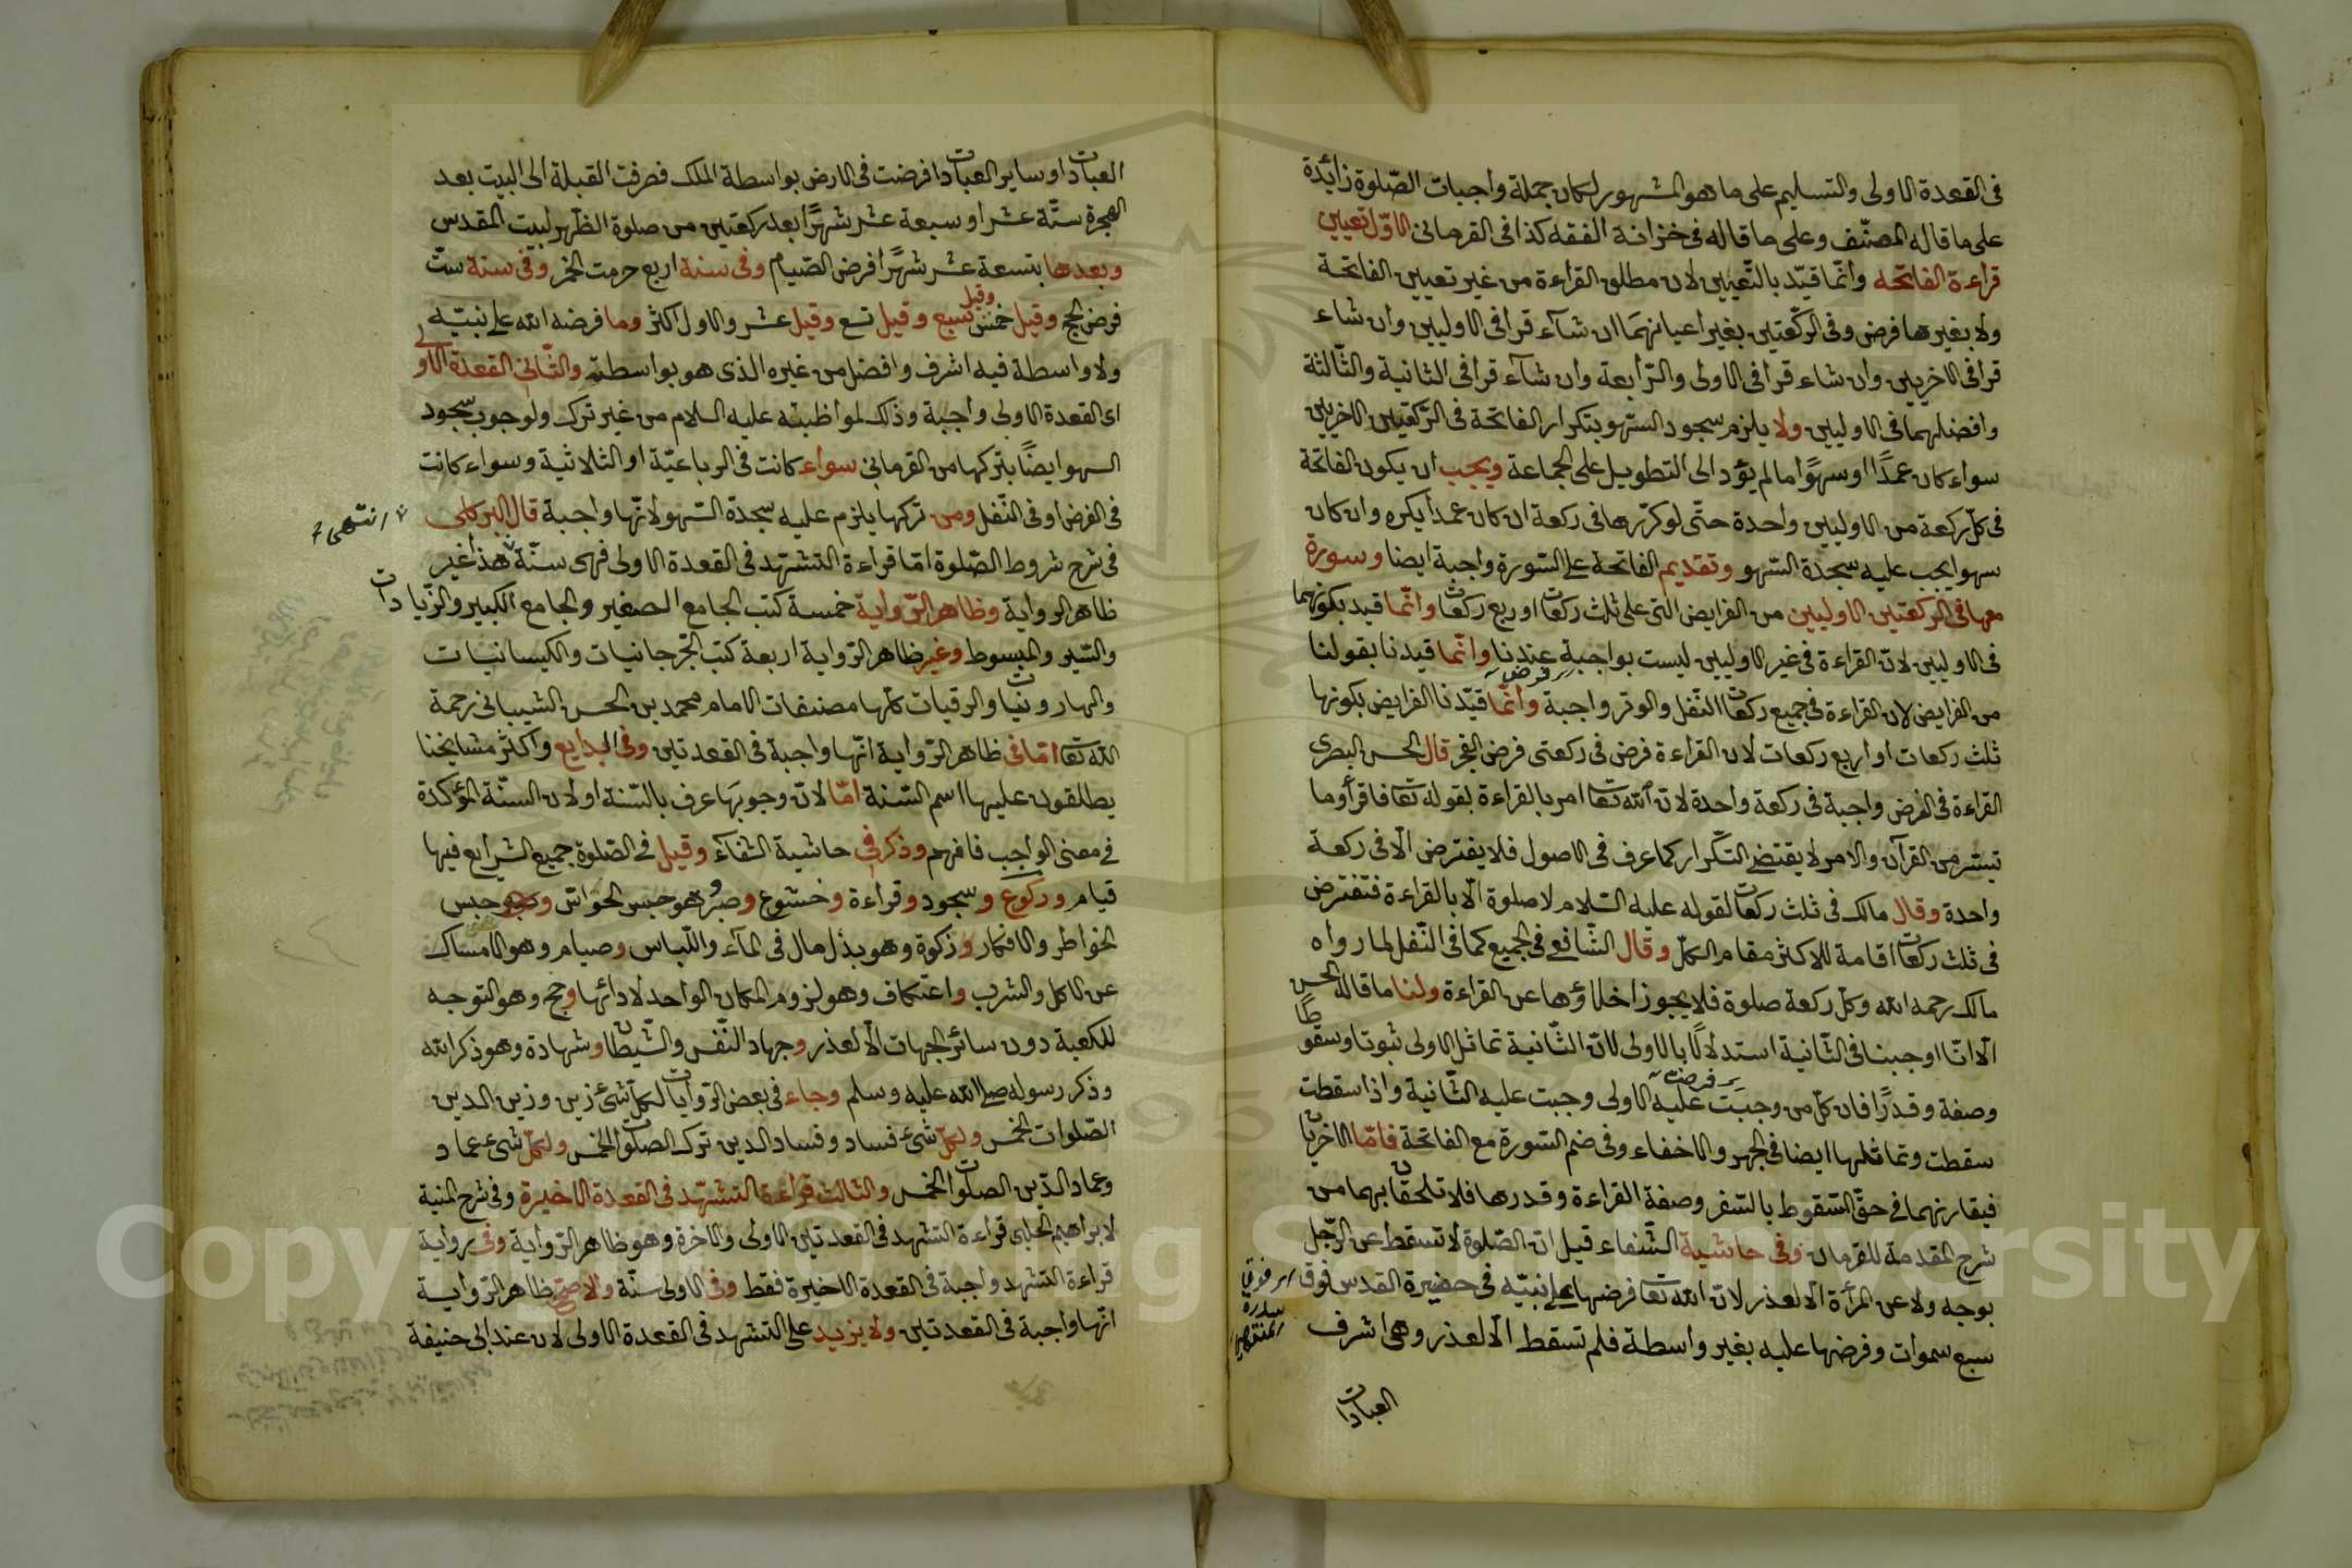 فى القعدة الاولى والتسليم على ما هو المشهور لكان جملة واجبات الصّلوة زائدة
على ما قاله المصنّف وعلى ما قاله فى خزانة الفقه كذا فى القرمانى الاوّل تعيين
قراءة الفاتحه وانّما قيّد بالتّعيين لان مطلق القراءة من غير تعيين الفاتحة
ولا بغيرها فرض وفى الركعتين بغير اعيانهما ان شاء قرا فى الاوليين وان شاء
قرا فى الاخريين وان شاء قرا فى الاولى والرّابعة وان شاء قرا فى الثانية والثّالثة
وافضلهما فى الاوليين ولا يلزم سجود السّهو بتكرار الفاتحة فى الرّكعتين الاخريين
سواء كان عمدًا او سهوًا ما لم يؤد الى التطويل على الجماعة ويجب ان يكون الفاتحة
فى كلّ ركعة من الاوليين واحدة حتّى لو كرّرها فى ركعة ان كان عمدا يكره وان كان
سهوا يجب عليه سجدة السّهو وتقديم الفاتحة على السّورة واجبة ايضا وسورة
معها فى الركعتين الاوليين من الفرايض التى على ثلث ركعات او ربع ركعات وانّما قيد بكونهما
فى الاوليين لانّ القراءة فى غير الاوليين ليست بواجبة عندنا وانّما قيدنا بقولنا
من الفرايض لان القراءة فى جميع ركعات النّفل والوتر واجبة وانّما قيّدنا الفرايض بكونها
فرض
ثلث ركعات او اربع ركعات لان القراءة فرض فى ركعتى فرض الفجر قال الحسن البصرى
القراءة فى الفرض واجبة فى ركعة واحدة لانّ الله تعا امر بالقراءة بقوله تعا فاقرأوا ما
تيسّر من القرآن والامر لا يقتضى التّكرار كما عرف فى الاصول فلا يفترض الّا فى ركعة
واحدة وقال مالك فى ثلث ركعات لقوله عليه السّلام لا صلوة الّا بالقراءة فتفترض
فى ثلث ركعات اقامة للاكثر مقام الكلّ وقال الشّافعى فى الجميع كما فى النّفل لما رواه
مالك رحمه الله وكلّ ركعة صلوة فلا يجوز اخلاؤها عن القراءة ولنا ما قاله الحسن
الّا انّا اوجبنا فى الثّانية استدلالًا بالاولى لانّ الثّانية تماثل الاولى ثبوتا وسقوطا
وصفة وقدرًا فان كلّ من وجبت عليه الاولى وجبت عليه الثّانية واذا سقطت
فرضت
سقطت وتماثلها ايضا فى الجهر والاخفاء وفى ضم السّورة مع الفاتحة فامّا الاخريان
فيفارنهما فى حقّ السّقوط بالسّفر وصفة القراءة وقدرها فلا تلحقان بهما من
شرح المقدمة للقرمان وفى حاشية الشّفاء قيل انّ الصّلوة لا تسقط عن الرّجل
بوجه ولا عن المرأة الّا لعذر لانّ الله تعا فرضها على نبيّه فى حضيرة القدس فوق
سبع سموات وفرضها عليه بغير واسطة فلم تسقط الّا لعذر وهى اشرف
فوق
سدرة
المنتهى
العبادات
العبادات او ساير العبادات افرضت فى الارض بواسطة الملك فصرفت القبلة الى البيت بعد
الهجرة ستّة عشر او سبعة عشر شهرًا بعد ركعتين من صلوة الظّهر لبيت المقدس
وبعدها بتسعة عشر شهرًا فرض الصّيام وفى سنة اربع حرمت الخمر وفى سنة ستّ
فرض الحج وقيل خمس وقيل سبع وقيل تسع وقيل عشر والاول اكثر وما فرضه الله على نبيّه
ولا واسطة فيه اشرف وافضل من غيره الذى هو بواسطة والثّانى القعدة الاولى
اى القعدة الاولى واجبة وذلك لمواظبته عليه السلام من غير ترك ولوجوب سجود
السهو ايضًا بتركها من القرمانى سواء كانت فى الرباعيّة او الثلاثية وسواء كانت
فى الفرض او فى النّفل ومن تركها يلزم عليه سجدة السّهو لانّها واجبة قال البركلى
انتهى
فى شرح شروط الصّلوة امّا قراءة التشهّد فى القعدة الاولى فهى سنّة هذا غير
ظاهر الرواية وظاهر الرّواية خمسة كتب الجامع الصغير والجامع الكبير والزّيادات
والسّير والمبسوط وغير ظاهر الرّواية اربعة كتب الجّرجانيات والكيسانيات
والهارونيات والرقيات كلّها مصنفات الامام محمد بن الحسن الشيبانى رحمة
الله تعا امّا فى ظاهر الرّواية انّها واجبة فى القعدتين وفى البدايع واكثر مشايخنا
يطلقون عليها اسم السّنة امّا لانّ وجوبها عرف بالسّنة او لان السنّة المؤكدة
فى معنى الواجب فافهم وذكر فى حاشية الشفاء وقيل فى الصّلوة جميع الشرايع فيها
قيام وركوع وسجود وقراءة وخشوع وصبر وهو حبس الحواسّ و حبس
الخواطر والافكار وزكوة وهو بذل مال فى الماء واللّباس وصيام وهو الامساك
عن الاكل والشرب واعتكاف وهو لزوم المكان الواحد لادائها وحج وهو التوجه
للكعبة دون سائر الجهات الّا لعذر وجهاد النّفس والشّيطان وشهادة وهو ذكر الله
وذكر رسوله صلى الله عليه وسلم وجاء فى بعض الرّوايات لكلّ شئ زين وزين الدين
الصّلوات الخمس ولكلّ شئ فساد وفساد الدين ترك الصلوات الخمس ولكلّ شئ عماد
وعماد الدّين الصلوات الخمس والثالث قراءة التشهّد فى القعدة الاخيرة وفى شرح المنية
لابراهيم الحلبى قراءة التشهد فى القعدتين الاولى والاخرة وهو ظاهر الرّواية وفى رواية
قراءة التشهد واجبة فى القعدة الاخيرة فقط وفى الاولى سنّة والاصح ظاهر الرّواية
انّها واجبة فى القعدتين ولا يزيد على التشهد فى القعدة الاولى لان عند ابى حنيفة
Copyright © King Saud University